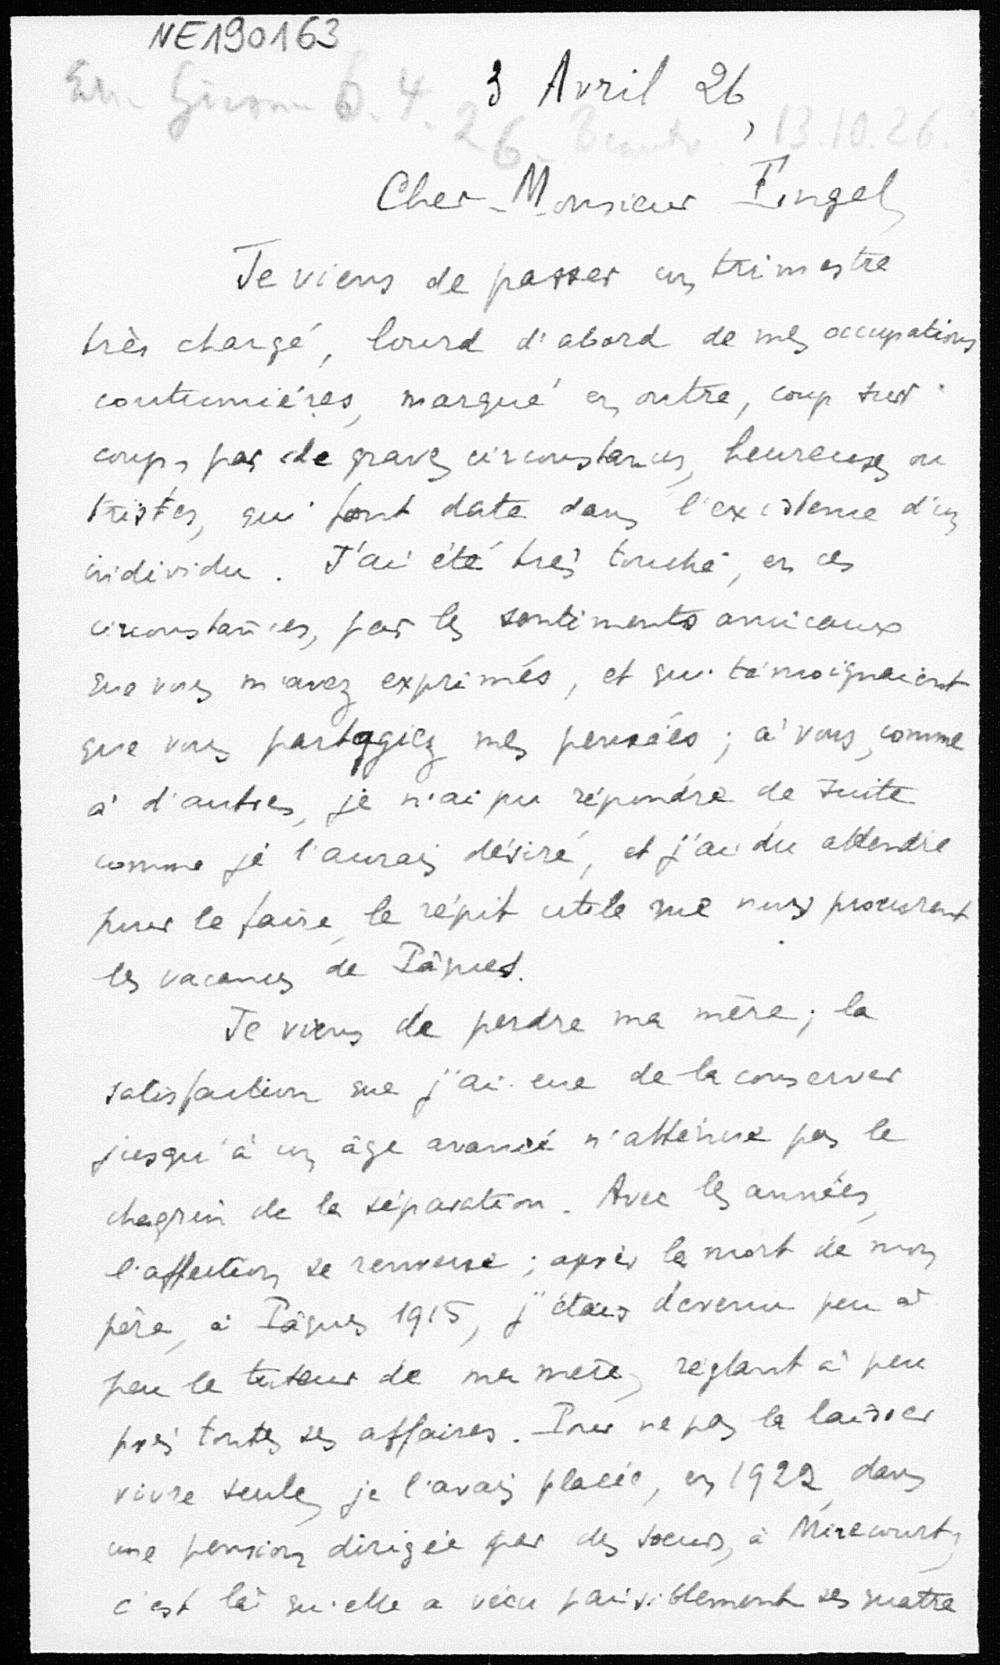 NE190163
3 Avril 26,
6.4.26 13.10.26.
Cher Monsieur Fingal,
Je viens de passer un trimestre
très chargé, lourd d'abord de mes occupations
coutumières, marqué en outre, coup sur
coup, par de graves circonstances, heureuses ou
tristes, qui font date dans l'existence d'un
individu. J'ai été très touché, en ces
circonstances, par les sentiments amicaux
que vous m'avez exprimés, et qui témoignaient
que vous partagiez mes pensées ; à vous, comme
à d'autres, je n'ai pu répondre de suite
comme je l'aurais désiré, et j'ai du attendre
pour le faire, le répit utile que nous procurent
les vacances de Pâques.
Je viens de perdre ma mère ; la
satisfaction que j'ai eue de la conserver
jusqu'à un âge avancé n'atténue pas le
chagrin de la séparation. Avec les années,
l'affection se renverse ; après la mort de mon
père, à Pâques 1915, j'étais devenu peu à
peu le tuteur de ma mère, réglant à peu
près toutes ses affaires. Pour ne pas la laisser
vivre seule, je l'avais placée, en 1922, dans
une pension dirigée par des soeurs, à Mirecourt,
c'est là qu'elle a vécu paisiblement ses quatre